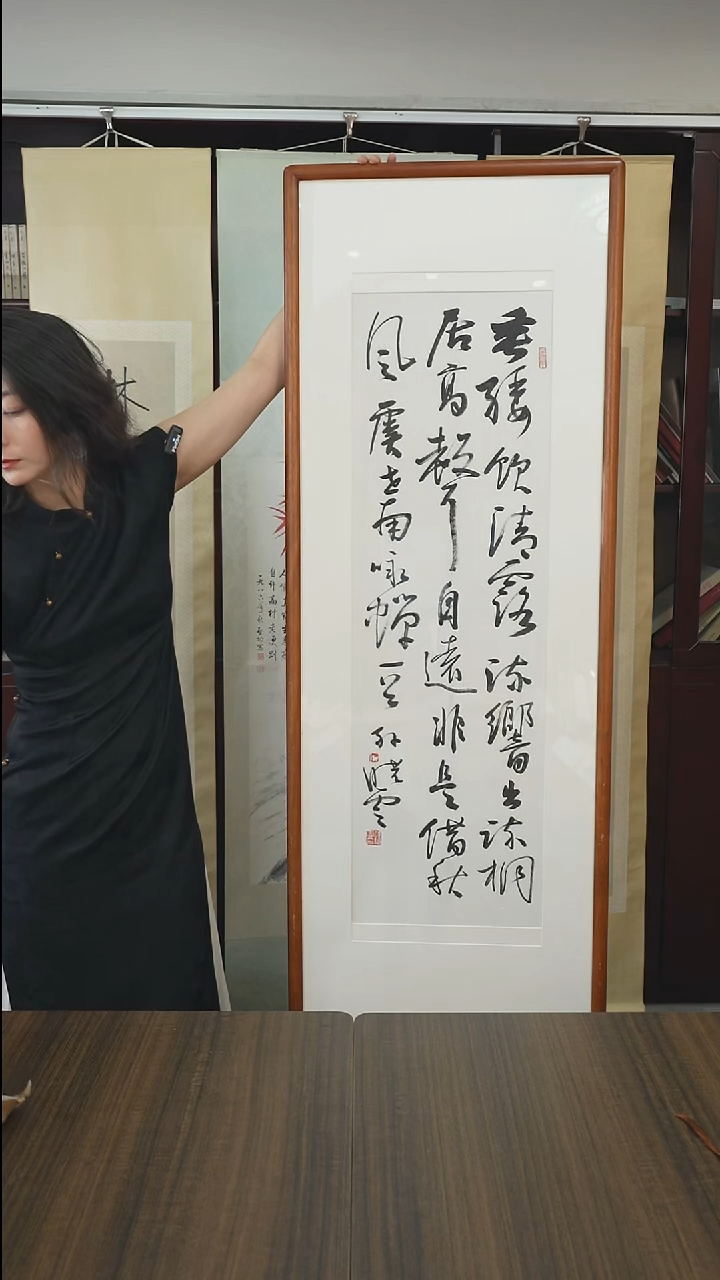 垂緌飲清露流響出疏桐
居高聲自遠非是借秋
風 虞世南咏蟬一首 孫曉雲
林